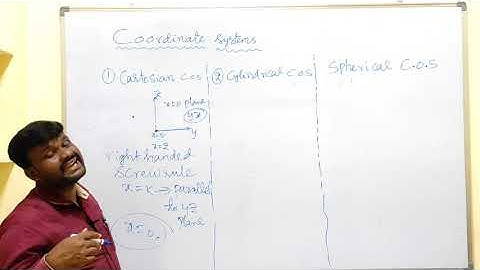 Coordinate systems
① Cartesian cos
② Cylindrical cos
Spherical C.O.S
z
x=0 plane
yz
y
x=2
right handed
screw rule
x=k → parallel
to yz
plane